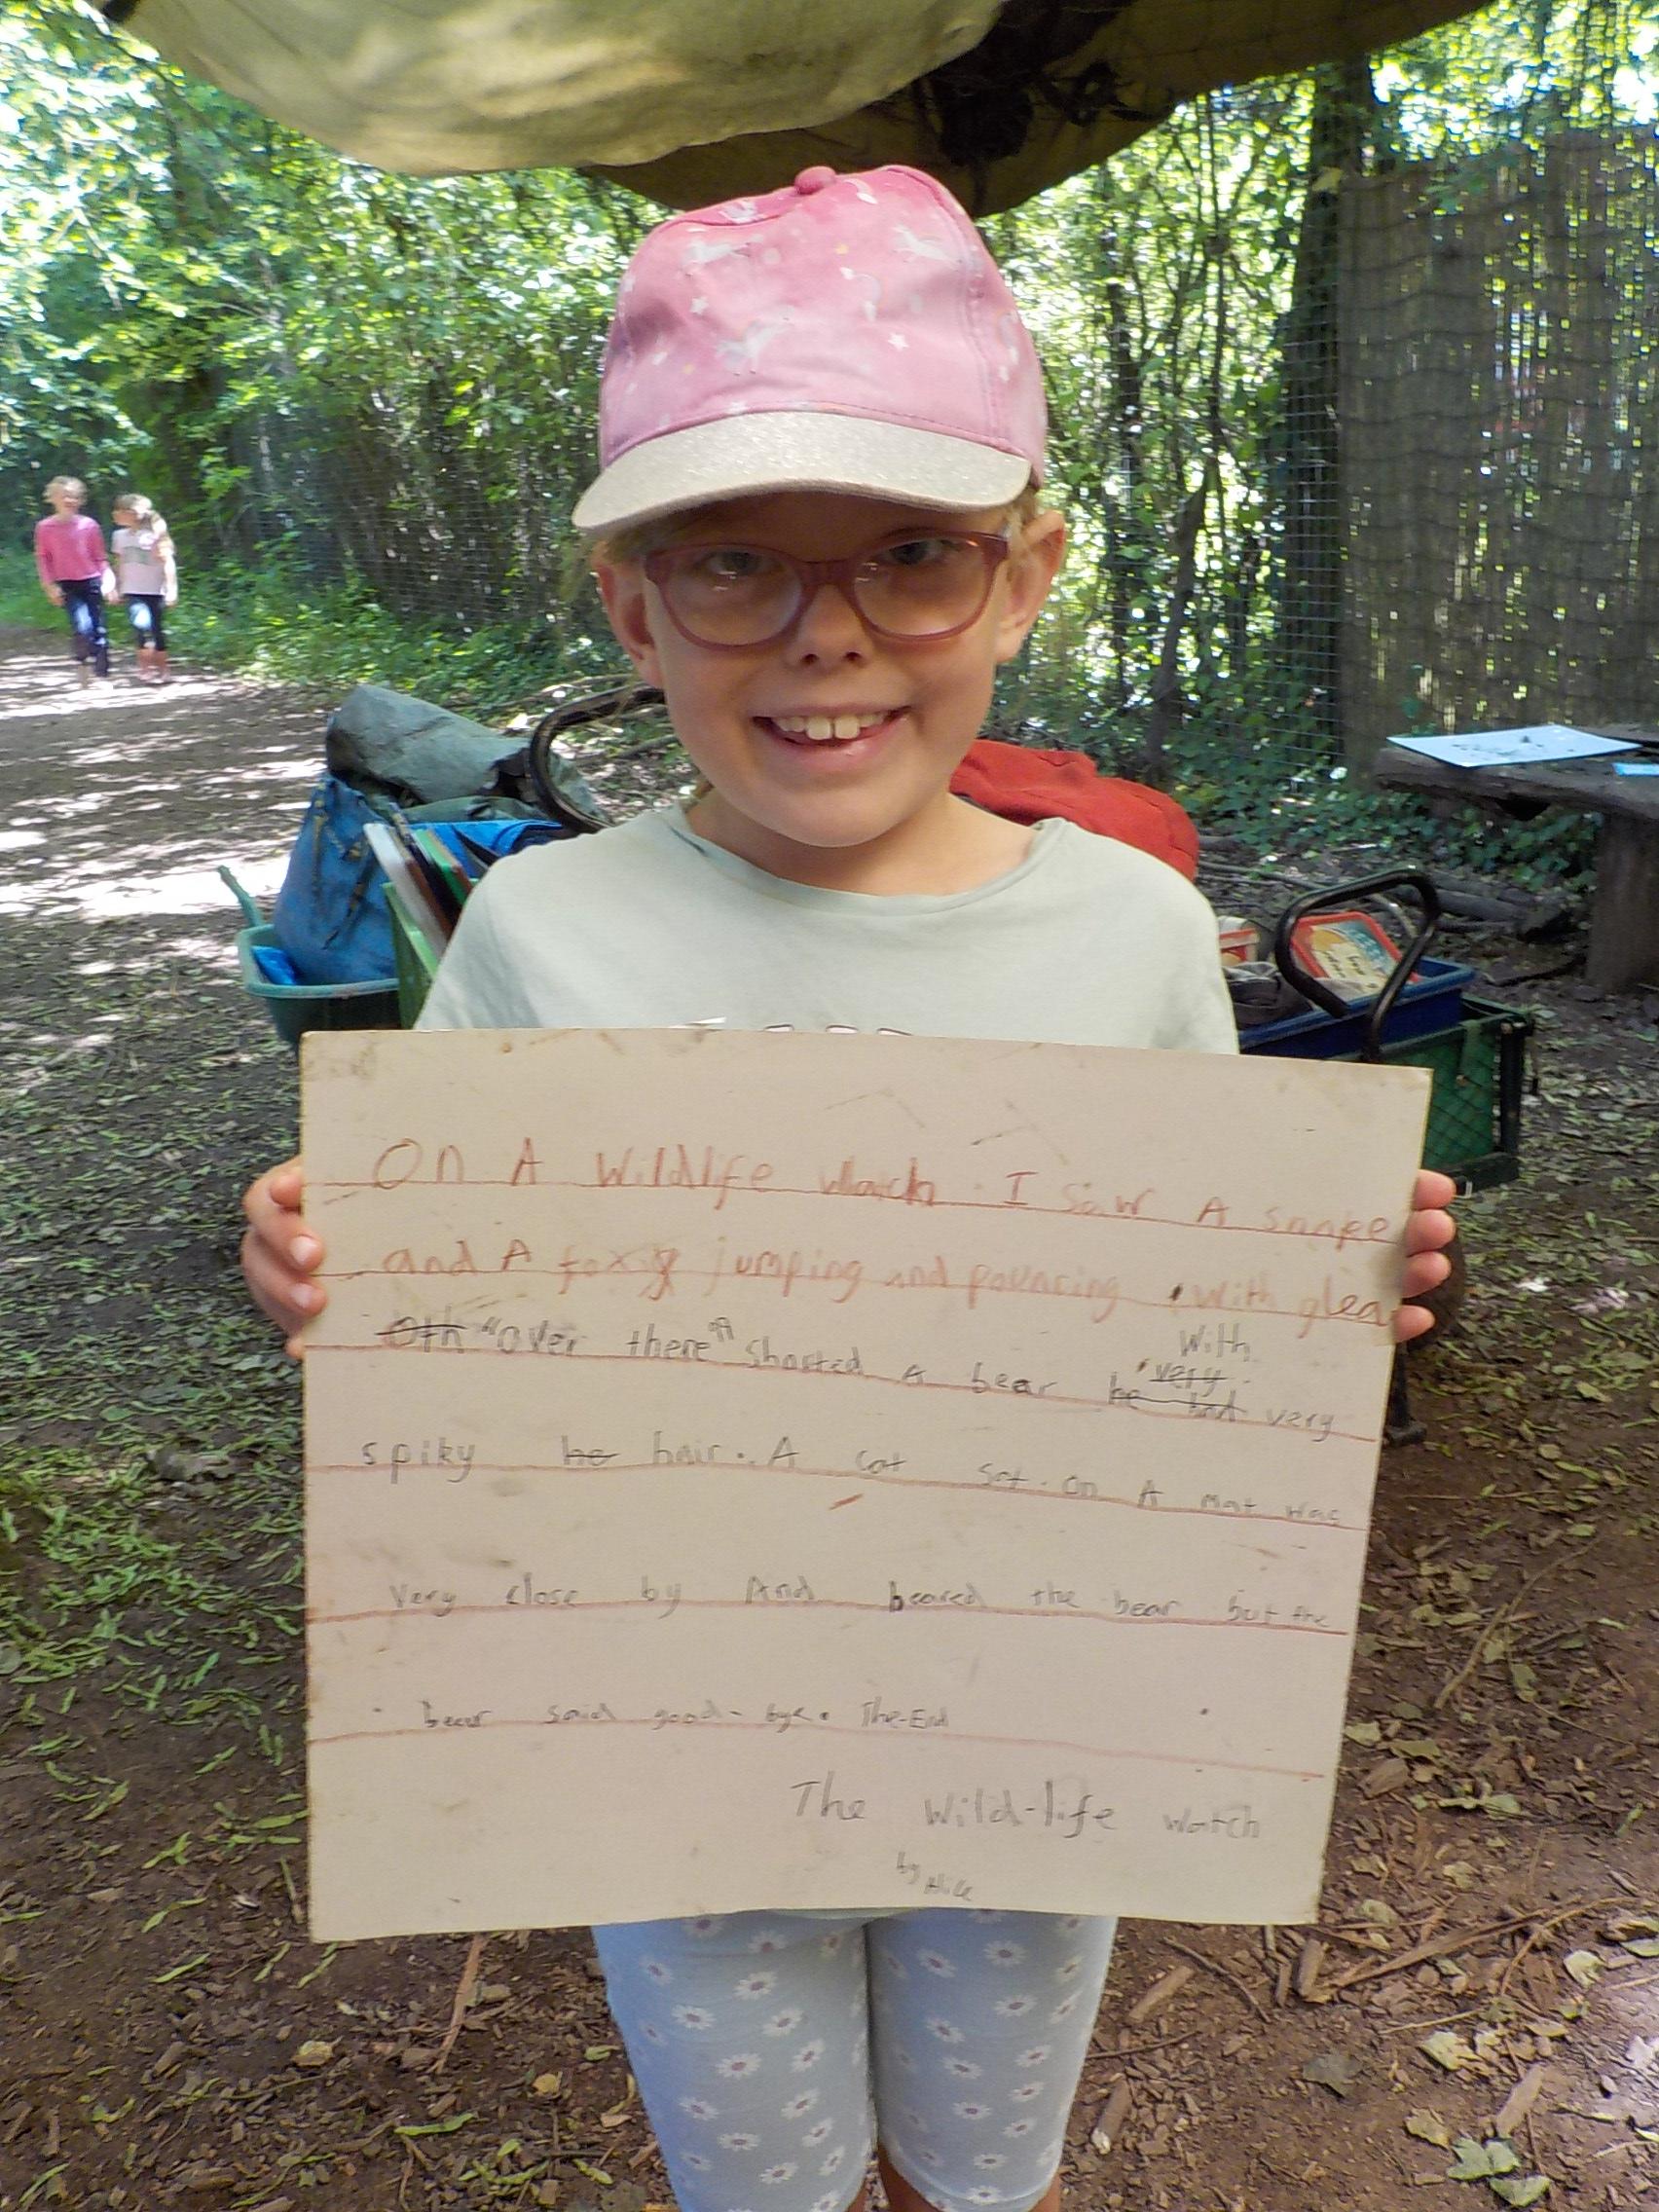 On A Wildlife Watch . I saw A snake
and A fox jumping and pouncing . With glea
Oth "Over there" shorted A bear he had very With very
spiky he hair . A cat sat . on A mat was
Very close by And beared the bear but the
bear said good-bye . The-End
The Wild-life watch
by